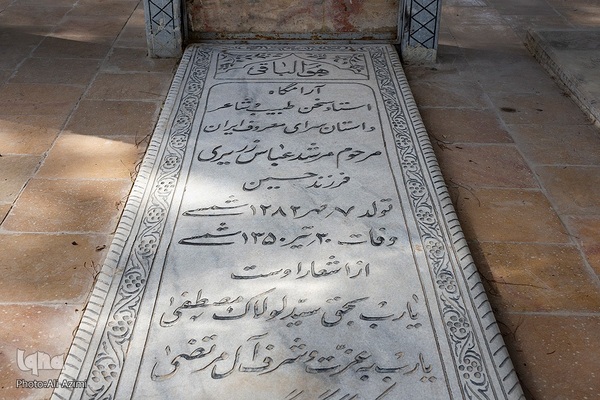 هوالباقی
آرامگاه
استاد سخن طبیب و شاعر
داستان سرای معروف ایران
مرحوم مرشد عباس زریری
فرزند حسین
تولد ۷ مهر ۱۲۸۲ شمسی
وفات ۳۰ تیر ۱۳۵۰ شمسی
از اشعار اوست
یارب بحق سید لولاک مصطفیٰ
یارب به عزت و شرف آل مرتضیٰ
iqna
Photo:Ali Azimi